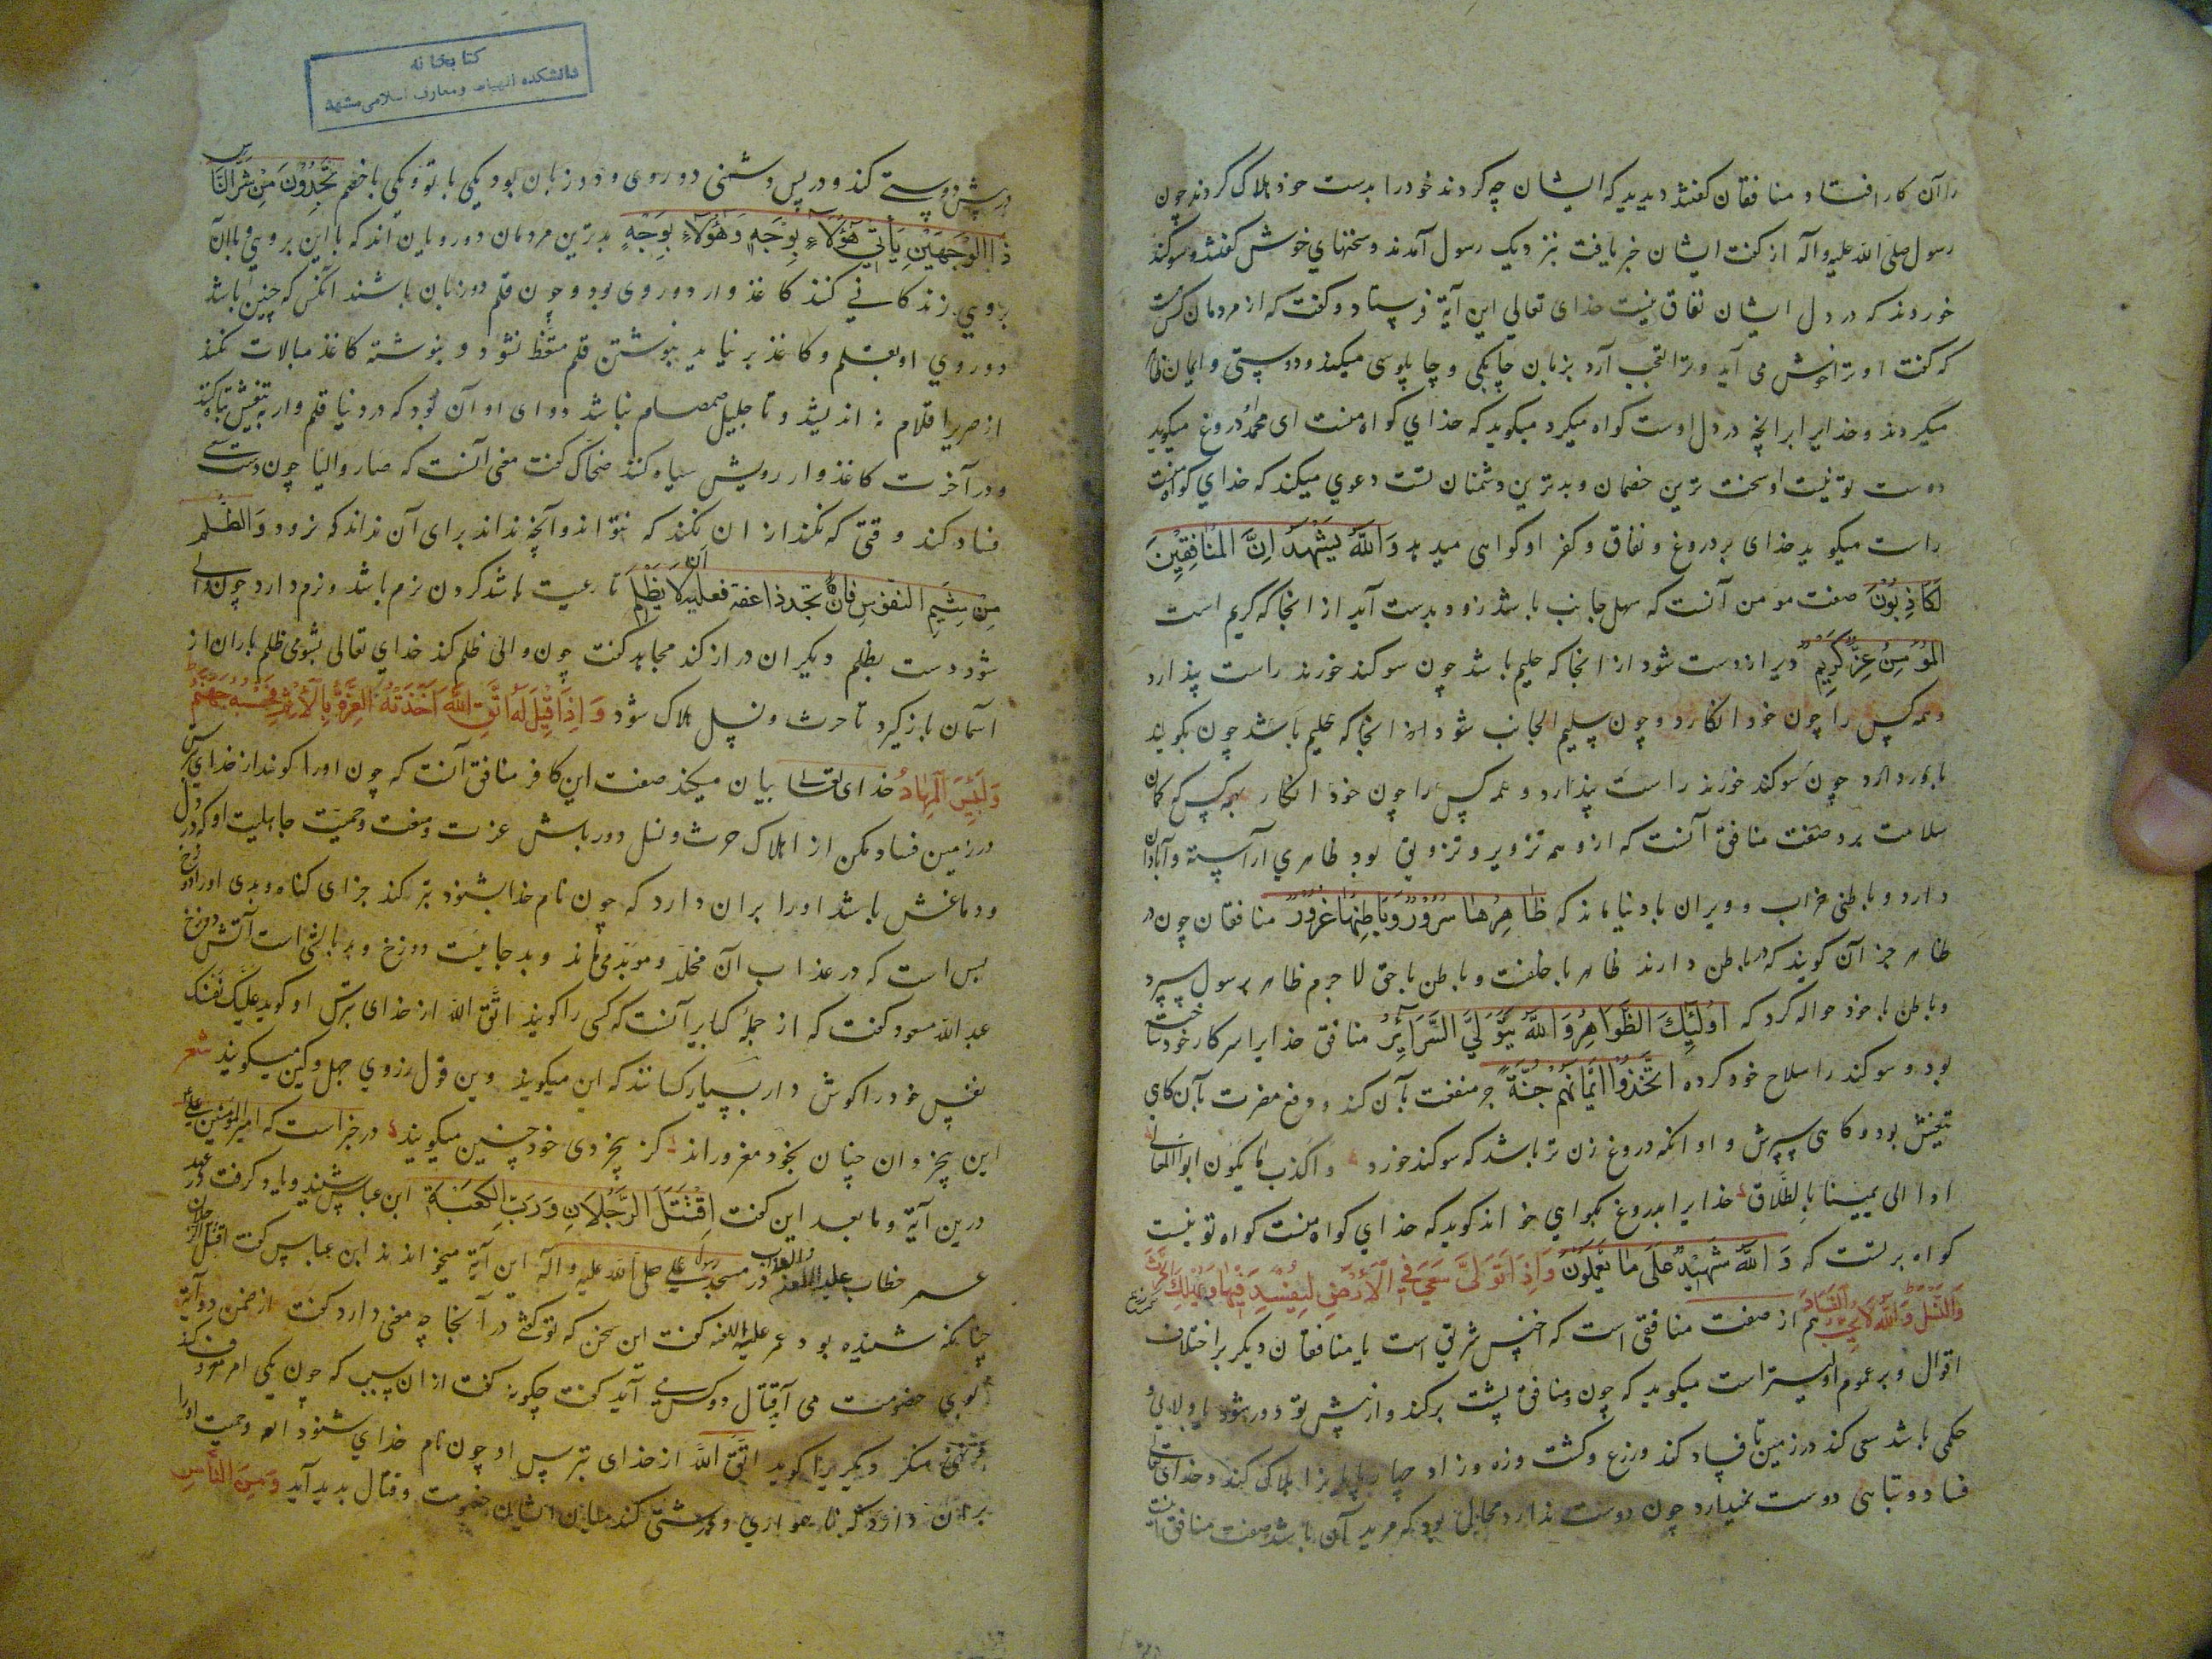 را آن کار افتاد و منافقان گفتند دیدید که ایشان چه کردند خود را بدست خود هلاک کردند چون
رسول صلی الله علیه و آله از گفت ایشان خبر یافت بنزدیک رسول آمدند و سخنهای خوش گفتند و سوکند
خوردند که در دل ایشان نفاق نیست خدای تعالی این آیة فرستاد و گفت که از مردمان کس هست
که گفت او ترا خوش می آید و ترا تعجب آرد بزبان چابکی و چاپلوسی میکند و دوستی و ایمان ظاهر
میکردند و خدایرا بر آنچه در دل اوست کواه میکرد میکوید که خدای کواه منست ای محمد دروغ میکوید
دوست تو نیست او سخت ترین خصمان و بدترین دشمنان تست دعوی میکند که خدای کواه منست
راست میکوید خدای بر دروغ و نفاق و کفر او کواهی میدهد وَاللّٰهُ یَشْهَدُ اِنَّ المُنَافِقِیْنَ
لَکَاذِبُوْنَ صفت مومن آنست که سهل جانب باشد زود بدست آید از آنجا که کریم است
المُؤْمِنُ غِرٌّ کَرِیْمٌ دیر از دست شود از آنجا که حلیم باشد چون سوکند خورند راست پندارد
و همه کس را چون خود انکارد و چون سلیم الجانب شود از آنجا که حلیم باشد چون بگویند
باور دارد چون سوکند خورند راست پندارد و همه کس را چون خود انکارد بهمه کس کمان
سلامت برد صفت منافق آنست که از و همه تزویر و تزویق بود ظاهری آراسته و آبادان
دارد و باطنی خراب و ویران با دنیا ماند که ظَاهِرُهَا سُرُوْرٌ وَبَاطِنُهَا غُرُوْرٌ منافقان چون در
ظاهر جز آن گویند که در باطن دارند ظاهر با خلقست و باطن با حق لا جرم ظاهر برسول سپرد
و باطن با خود حواله کرد که اُولٰئِکَ الظَّوَاهِرُ وَاللّٰهُ یَتَوَلَّی السَّرَائِرُ منافق خدایرا سرکار خود ساخته
بود و سوکند را سلاح خود کرده اِتَّخَذُوْا اَیْمَانَهُمْ جُنَّةً جر منفعت بآن کند و دفع مضرت بآن کاهی
تیغش بود و کاهی سپرش و او آنکه دروغ زن تر باشد که سوکند خورد و اکذب ما یکون ابو المعالی
اذا الی یمینا بالطلاق خدایرا بدروغ بکواهی خواند کوید که خدای کواه منست کواه تو نیست
کواه بر تست که وَاللّٰهُ شَهِیْدٌ عَلَی مَا یَعْمَلُوْنَ وَاِذَا تَوَلَّی سَعَی فِی الْاَرْضِ لِیُفْسِدَ فِیْهَا وَیُهْلِکَ الْحَرْثَ
وَالنَّسْلَ وَاللّٰهُ لَا یُحِبُّ الْفَسَادَ هم از صفت منافقی است که اخنس شریق است یا منافقان دیکر بر اختلاف
اقوال و بر عموم اولیتر است میکوید که چون منافق پشت برکند و از پیش تو دور شود یا ولایتی و
حکمی باشد سعی کند در زمین تا فساد کند و زرع و کشت و زه و زاد چهارپایانرا هلاک کند و خدای تعالی
فساد و تباهی دوست نمیدارد چون دوست ندارد محال بود که مرید آن باشد و صفت منافق آنست
کتابخانه
دانشکده الهیات و معارف اسلامی مشهد
در پیش دوستی کند و در پس دشمنی دو روی و دو زبان بود یکی با تو و یکی با خصم تَجِدُوْنَ مِنْ شَرِّ النَّاس
ذَا الْوَجْهَیْنِ یَأْتِی هٰؤُلَاءِ بِوَجْهٍ وَهٰؤُلَاءِ بِوَجْهٍ بدترین مردمان دورویان اند که با این بروی و با آن
بروی زندکانی کنند کاغذ وار دو روی بود و چون قلم دو زبان باشند آنکس که چنین باشد
دو روی او بقلم و کاغذ بر نیاید بنوشتن قلم متعظ نشود و بنوشته کاغذ مبالات نکند
از صریر اقلام نه اندیشد و تا جلیل صمصام نباشد دوای او آن بود که در دنیا قلم وار به تیغش تباه کند
و در آخرت کاغذ وار رویش سیاه کند ضحاک گفت معنی آنست که صار والیا چون دست
فساد کند وقتی که نکند از ان نکند که نتواند و آنچه نداند برای آن نداند که نرود وَالظُّلْم
مِنْ شِیَمِ النفوس فَاِنْ تجد ذا عفة فعلیة لا یظلم تا رعیت باشد کردن نرم باشد و نرم دارد چون والی
شود دست بظلم دیکران دراز کند مجاهد گفت چون والی ظلم کند خدای تعالی بشومی ظلم باران از
آسمان باز گیرد تا حرث و نسل هلاک شود وَاِذَا قِیْلَ لَهُ اتَّقِ اللّٰهَ اَخَذَتْهُ الْعِزَّةُ بِالْاِثْمِ فَحَسْبُهُ جَهَنَّمُ
وَلَبِئْسَ الْمِهَادُ خدای تعالی بیان میکند صفت این کافر منافق آنست که چون او را کویند از خدای بترس
در زمین فساد مکن از اهلاک حرث و نسل دور باش عزت و منعت و حمیت جاهلیت او که در دل
و دماغش باشد او را بر آن دارد که چون نام خدا بشنود بتر کند جزای کناه و بدی او را دوزخ
بس است که در عذاب آن مخلد و موبد می ماند و بد جاییست دوزخ و بد بالشی است آتش دوزخ
عبد الله مسعود گفت که از جمله کبایر آنست که کسی را کویند اتَّقِ الله از خدای بترس او کوید عَلَیْکَ نَفْسَکَ
نفس خود را کوش دار بسیار کسانند که این میکویند وین قول ز روی جهل و کین میکویند شعر
این بیخردان چنان بخود مغروراند کز بیخردی خود چنین میکویند در خبر است که امیر المؤمنین علی
درین آیة و ما بعد این گفت اِقْتَتَلَ الرَّجُلَانِ وَرَبِّ الْکَعْبَةِ ابن عباس بشنید و یاد کرفت در عهد
عمر خطاب علیه اللعنة والعذاب در مسجد رسول صلی الله علیه و آله این آیة میخواندند ابن عباس گفت اقتتل الرجلان
چنانکه شنیده بود عمر علیه اللعنه گفت این سخن که تو گفتی در آنجا چه معنی دارد گفت از ضمن دو آیة
بوی خصومت می آید قتال دو کس می آید گفت چکونه گفت از ان سبب که چون یکی امر معروف کند
و نهی منکر دیکریرا کوید اتَّقِ اللّٰهَ از خدای بترس او چون نام خدای شنود انفه و حمیت او را
بر آن دارد که با جباری و درشتی کند میان ایشان خصومت و قتال پدید آید وَمِنَ النَّاسِ